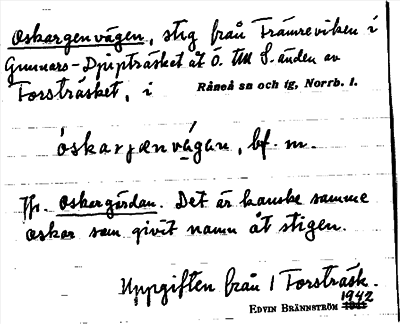 Oskargenvägen, stig från Främreviken i
Gunnars-Djupträsket åt Ö. till S.änden av
Forsträsket, i Råneå sn och tg, Norrb. l.
óskarjænvä̀gan, bf. m.
Jfr. Oskargärdan. Det är kanske samme
Oskar som givit namn åt stigen.
Uppgiften från 1 Forsträsk.
EDVIN BRÄNNSTRÖM 1942